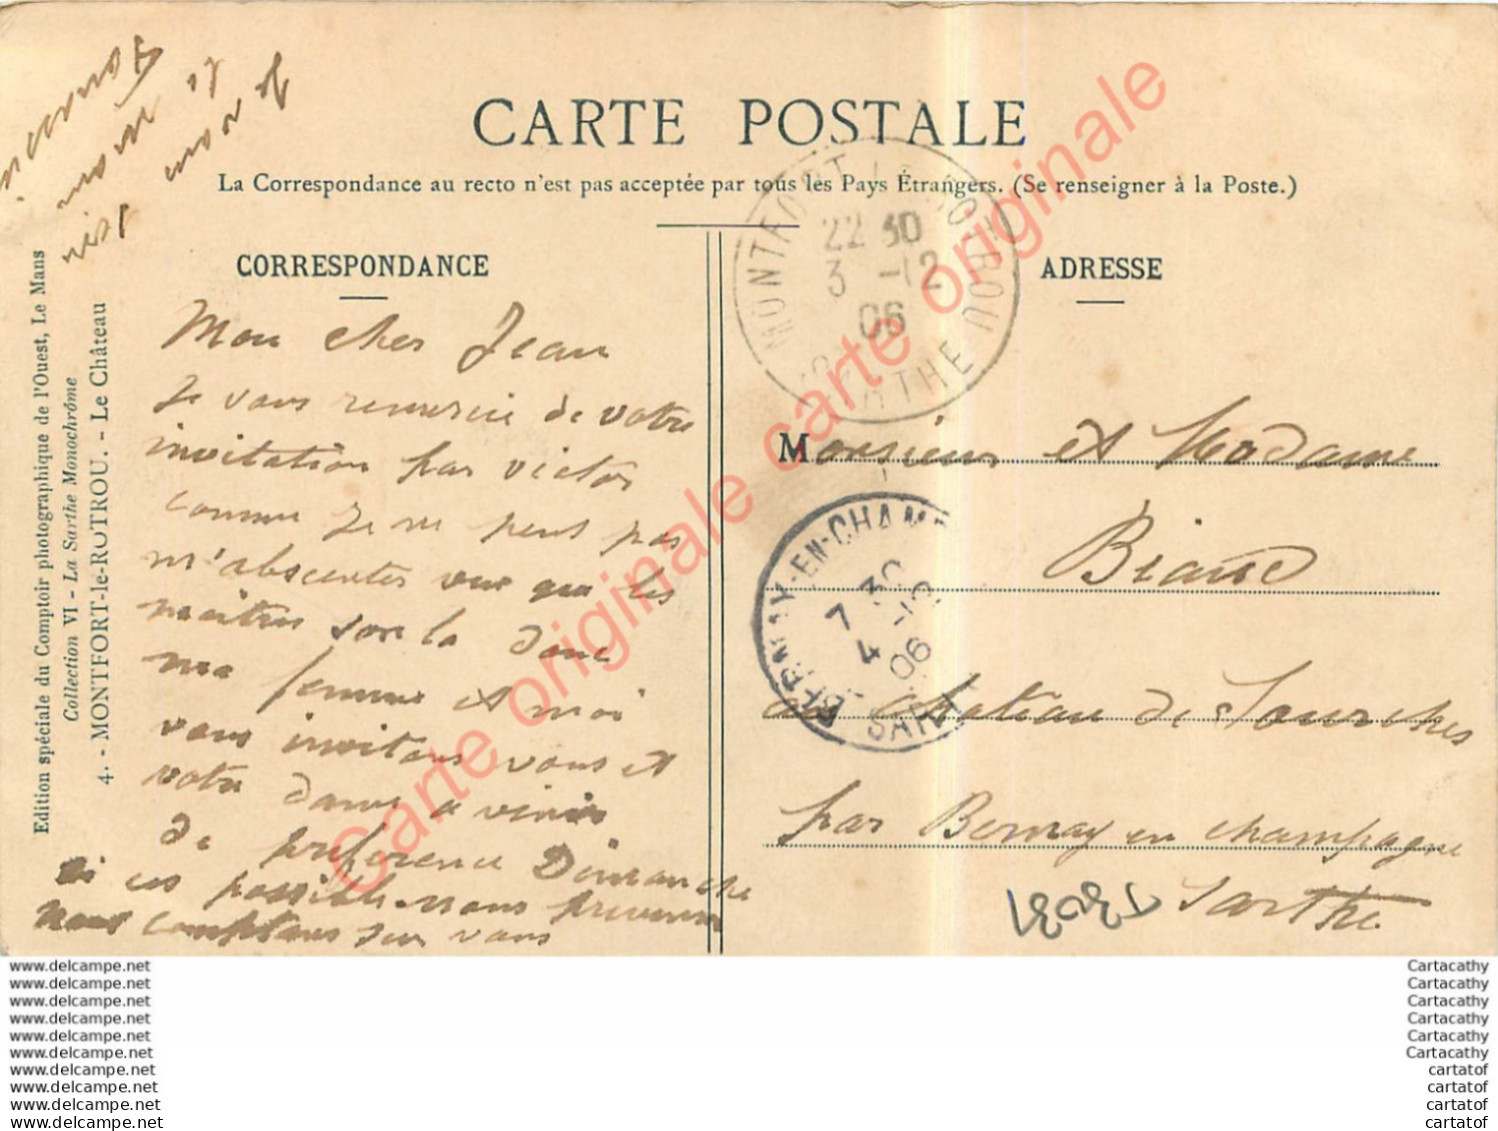 CARTE POSTALE
La Correspondance au recto n'est pas acceptée par tous les Pays Étrangers. (Se renseigner à la Poste.)
CORRESPONDANCE
ADRESSE
Edition spéciale du Comptoir photographique de l'Ouest, Le Mans
Collection VI - La Sarthe Monochrôme
4. - MONTFORT-le-ROTROU. - Le Château
Mon cher Jean
Je vous remercie de votre
invitation par victor
comme Je ne peut pas
m'absenter vue que les
maitres son la donc
ma femme et moi
vous invitons vous et
votre dame a venir
de preference Dimanche
si ces possible nous
nous comptons sur vous
MONTFORT-LE-ROTROU
22 30
3 -12
06
SARTHE
Monsieur et Madame
BERNAY-EN-CHAMP
7 30
4
06
SARTHE
au chateau de Sourches
par Bernay en champagne
Sarthe
Carte originale carte originale
www.delcampe.net
www.delcampe.net
www.delcampe.net
www.delcampe.net
www.delcampe.net
www.delcampe.net
www.delcampe.net
www.delcampe.net
www.delcampe.net
www.delcampe.net
Cartacathy
Cartacathy
Cartacathy
Cartacathy
Cartacathy
Cartacathy
cartatof
cartatof
cartatof
cartatof